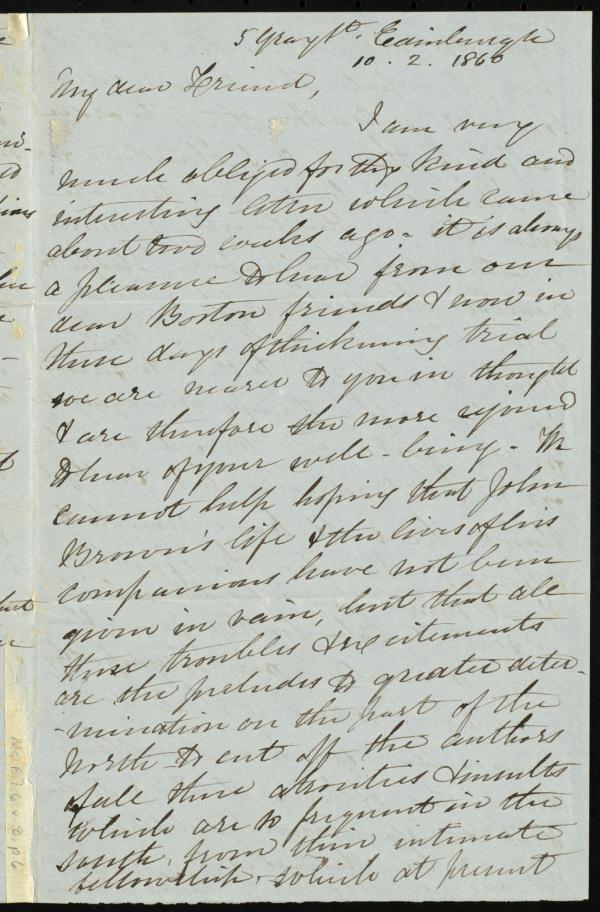 5 Gray St. Edinburgh
10. 2. 1860
My dear Friend,
I am very
much obliged for thy kind and
interesting letter which came
about two weeks ago - it is always
a pleasure to hear from our
dear Boston friends & now in
these days of thickening trial
we are nearer to you in thought
& are therefore the more rejoiced
to hear of your well-being - We
cannot help hoping that John
Brown's life & the lives of his
companions have not been
given in vain, but that all
these troubles & excitements
are the preludes to greater deter-
mination on the part of the
North to cut off the authors
of all those atrocities & insults
which are so frequent in the
South, from their intimate
fellowship, which at present